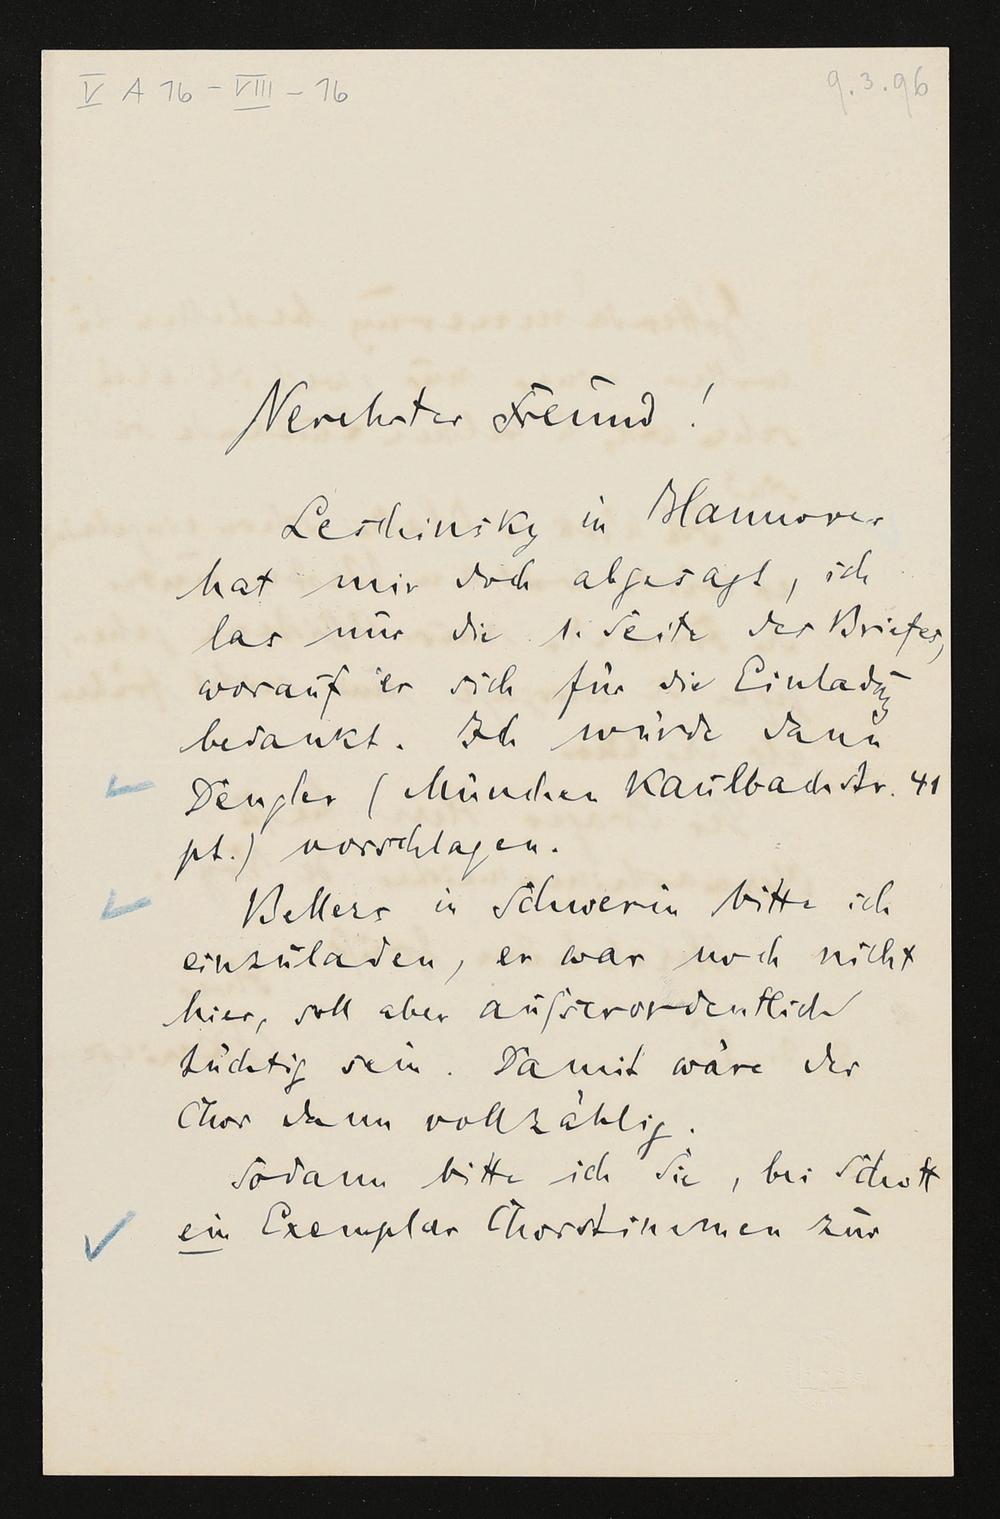 V A 16 - VIII - 16
9.3.96
Verehrter Freund!
Leschinsky in Hannover
hat mir doch abgesagt, ich
las nur die 1. Seite des Briefes,
worauf er sich für die Einladung
bedankt. Ich würde dann
Dengler (München Kaulbachstr. 41
pt.) vorschlagen.
Bellers in Schwerin bitte ich
einzuladen, er war noch nicht
hier, soll aber außerordentlich
tüchtig sein. Damit wäre der
Chor dann vollzählig.
Sodann bitte ich Sie, bei Schott
ein Exemplar Chorstimmen zur